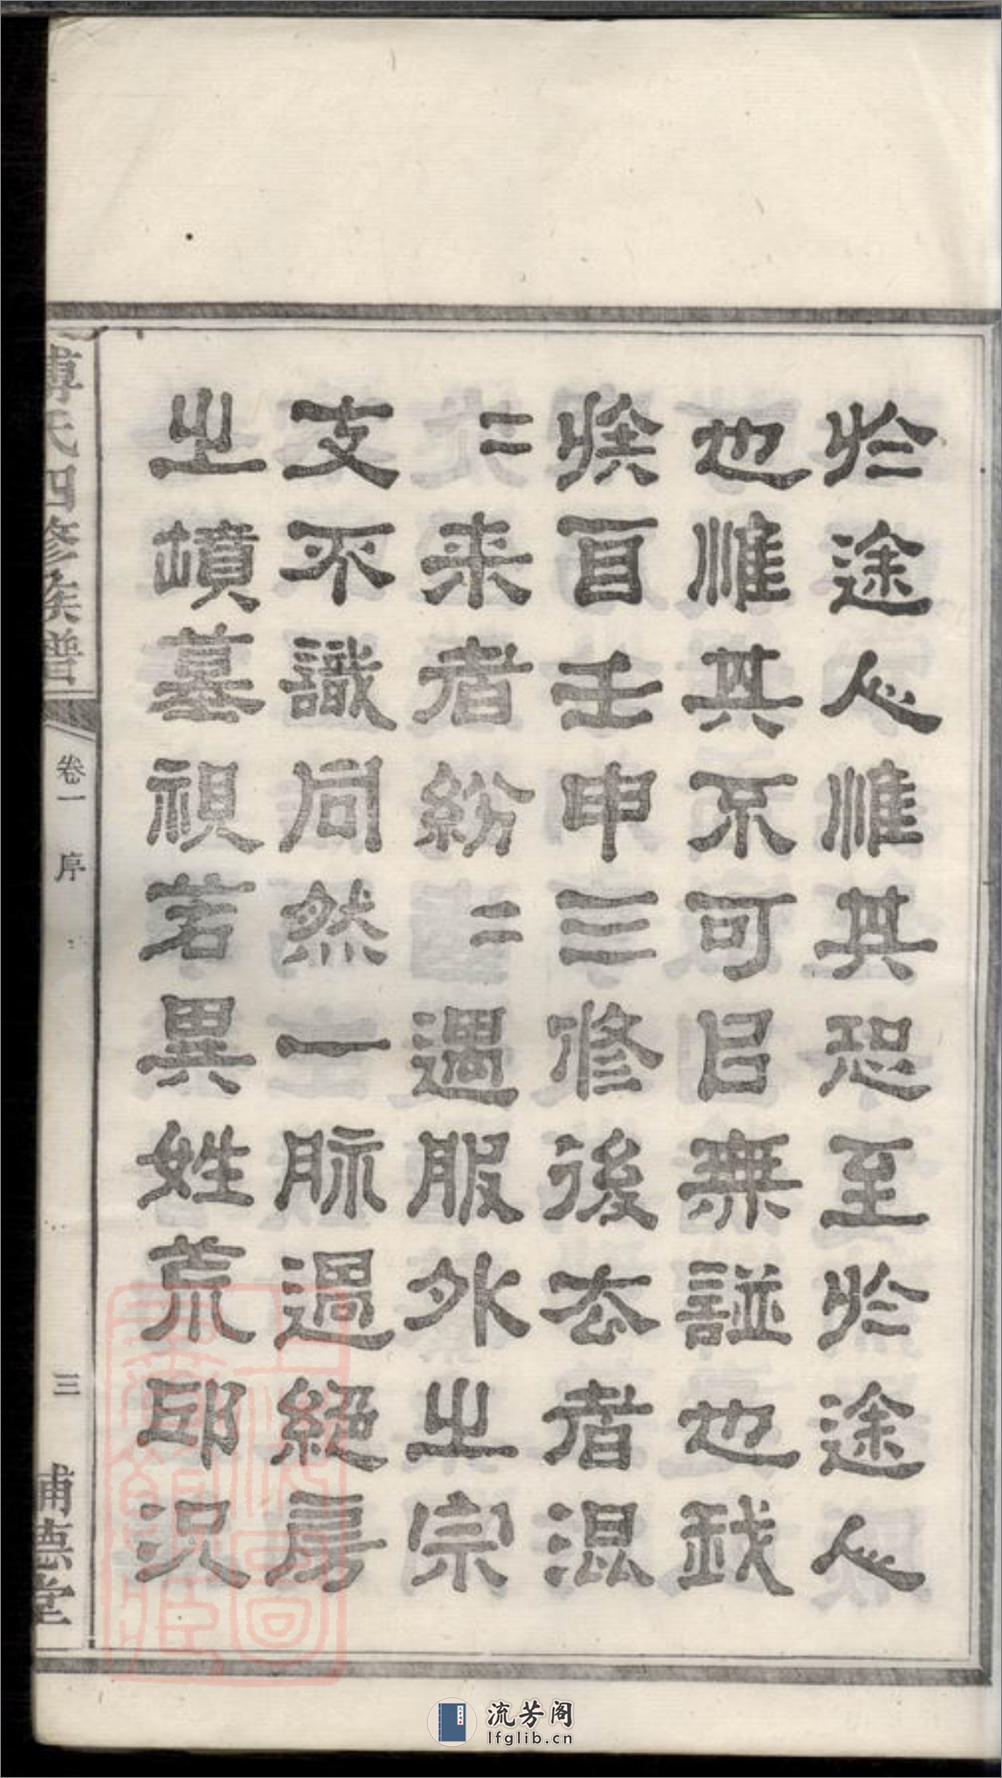 於途人惟其恐至於途人
也惟其不可㠯無譜也我
族自壬申三修後去者混
〻来者紛〻遇服外之宗
支不識同然一脈過絕房
之墳墓視若異姓荒邱況
傅氏四修族譜
卷一
序
三
浦德堂
流芳阁
lfglib.cn